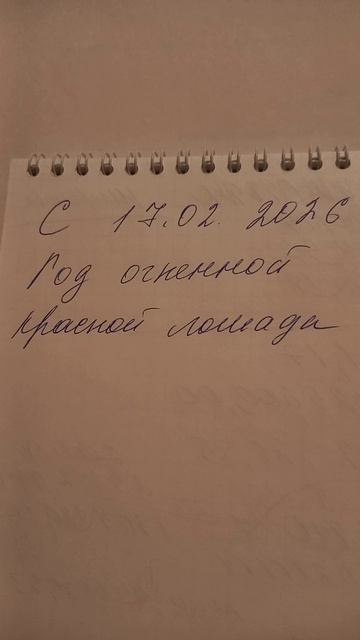 С 17.02. 2026
Год огненной
красной лошади